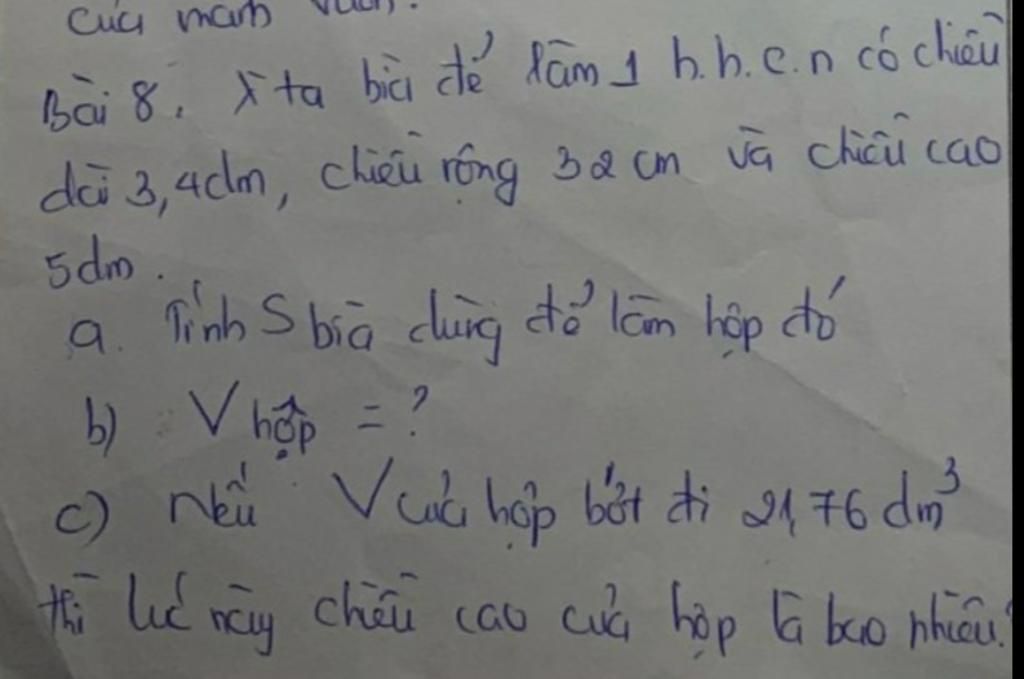 của mảnh vườn.
Bài 8. X ta bìa để làm 1 h.h.c.n có chiều
dài 3,4dm, chiều rộng 32 cm và chiều cao
5dm.
a. Tính S bìa dùng để làm hộp đó
b) V hộp = ?
c) Nếu V của hộp bớt đi 21,76 dm³
thì lúc này chiều cao của hộp là bao nhiêu?